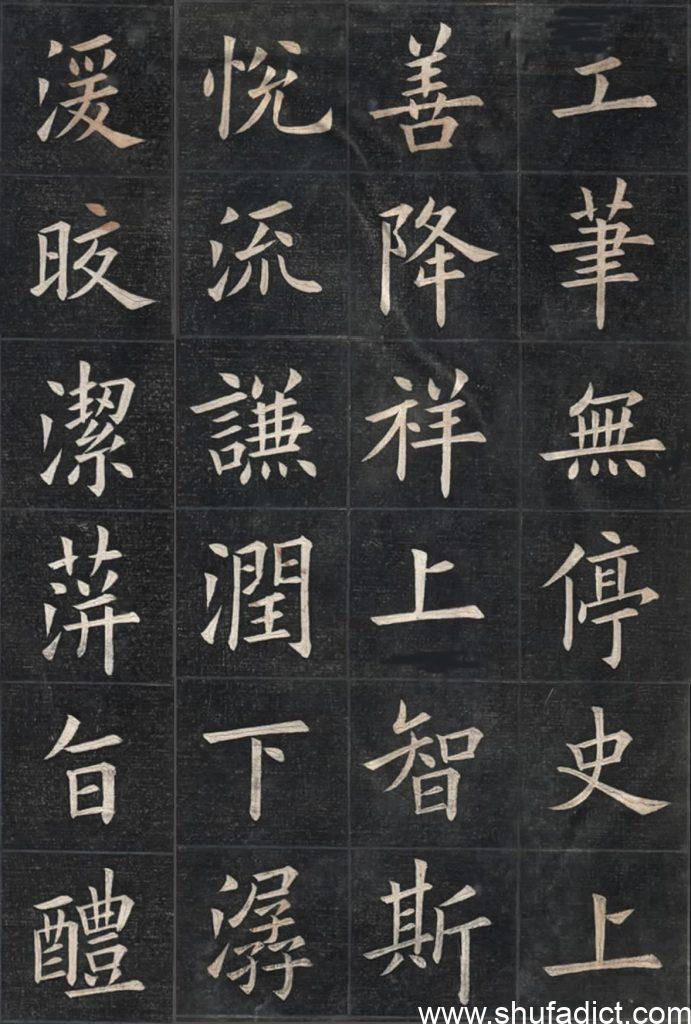 工筆無停史上
善降祥上智斯
悅流謙潤下潺
湲晈潔蓱旨醴
www.shufadict.com